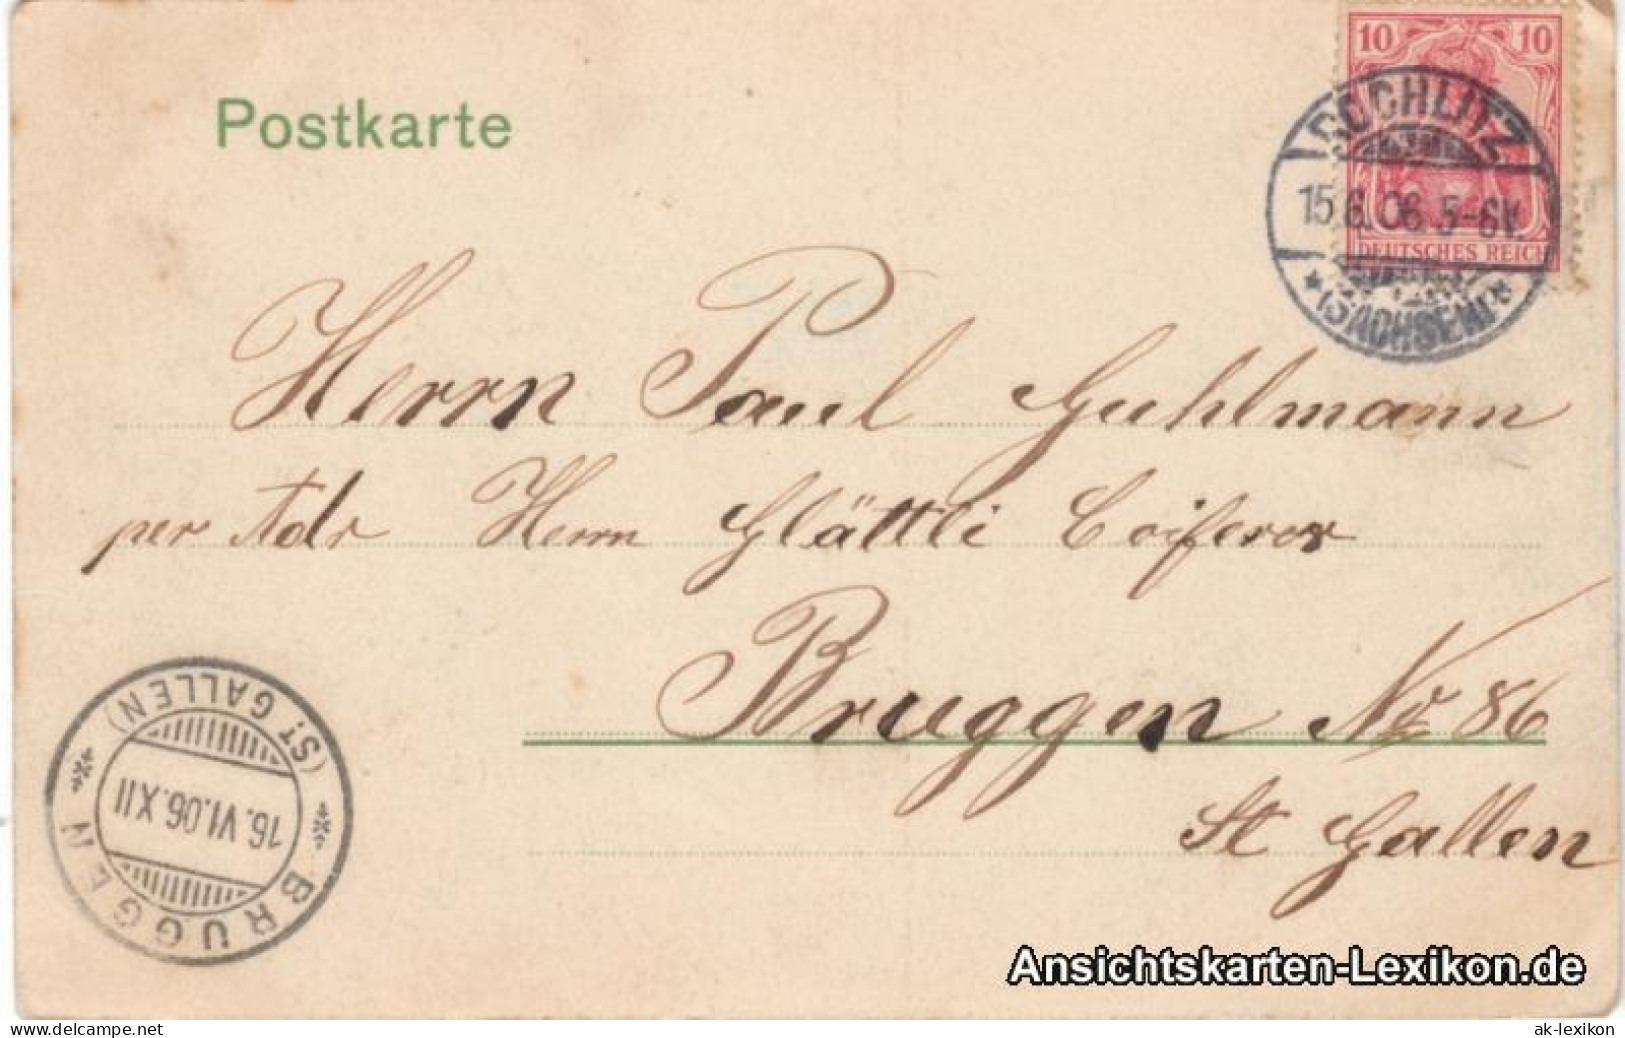 Postkarte
10 10
DEUTSCHES REICH
ROCHLITZ
15.6.06.5-6V.
* (SACHSEN) *
Herrn Paul Guhlmann
per Adr Herrn Glättli Coiferor
Bruggen No 86
St Gallen
BRUGGEN
(ST. GALLEN)
16.VI.06.XII
Ansichtskarten-Lexikon.de
www.delcampe.net
ak-lexikon